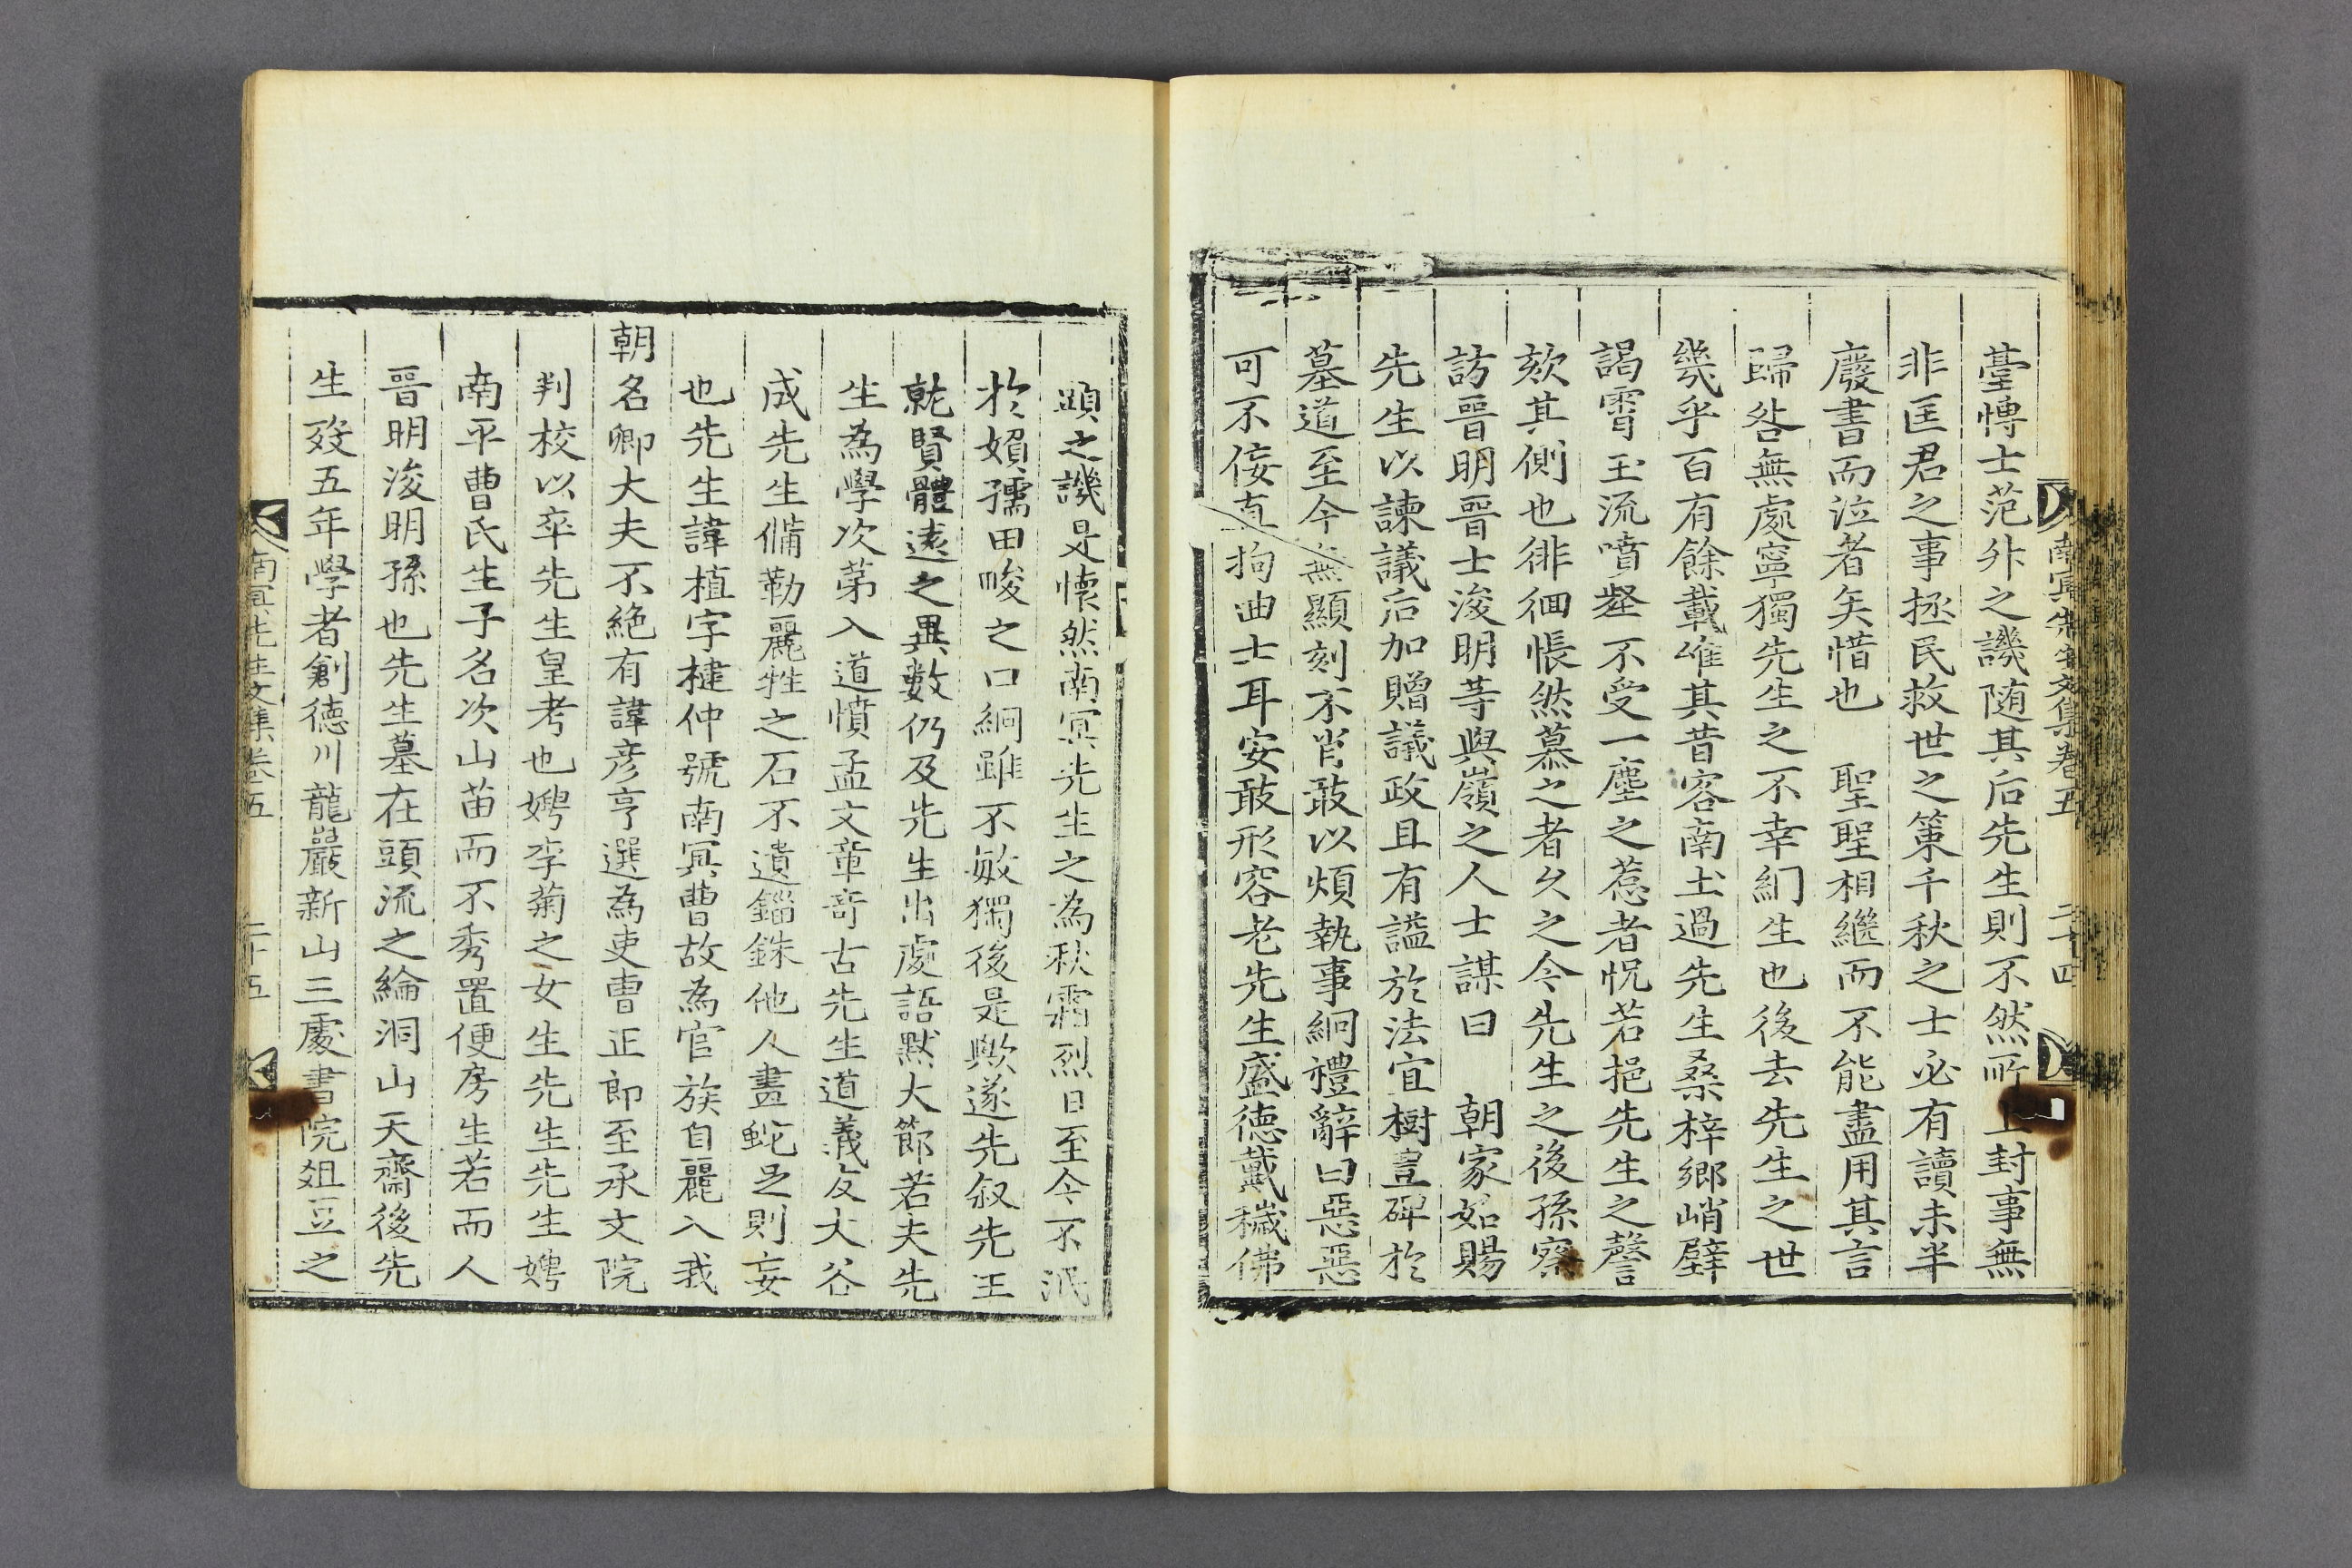 臺愽士范升之譏随其后先生則不然所上封事無
非匡君之事拯民救世之策千秋之士必有讀未半
廢書而泣者矣惜也 聖聖相繼而不能盡用其言
歸咎無處寧獨先生之不幸幻生也後去先生之世
幾乎百有餘載唯其昔客南土過先生桑梓鄉峭壁
謁霄玉流噴壑不受一塵之惹者怳若挹先生之謦
欬其側也徘徊悵然慕之者久之今先生之後孫察
訪晋明晋士浚明等與嶺之人士謀曰 朝家如賜
先生以諫議后加贈議政且有謚於法宜樹豊碑於
墓道至今無顯刻不肖敢以煩執事絅禮辭曰惡惡
可不侫直拘迪士耳安敢形容老先生盛德戴穢佛
南冥先生文集卷五 二十四
頭之譏是懷然南冥先生之為秋霜烈日至今不泯
於㜲孺田畯之口絅雖不敏獨後是歟遂先叙先王
就賢體遠之異數仍及先生出處語默大節若夫先
生為學次苐入道憤孟文章竒古先生道義友大谷
成先生俻勒麗牲之石不遺錙銖他人畫蛇足則妄
也先生諱植字楗仲號南冥曹故為官族自麗入我
朝名卿大夫不絶有諱彦亨選為吏曹正郎至承文院
判校以卒先生皇考也娉李菊之女生先生先生娉
南平曹氏生子名次山苗而不秀置便房生若而人
晋明浚明孫也先生墓在頭流之綸洞山天齋後先
生歿五年學者創德川龍巖新山三處書院俎豆之
南冥先生文集卷五 二十五